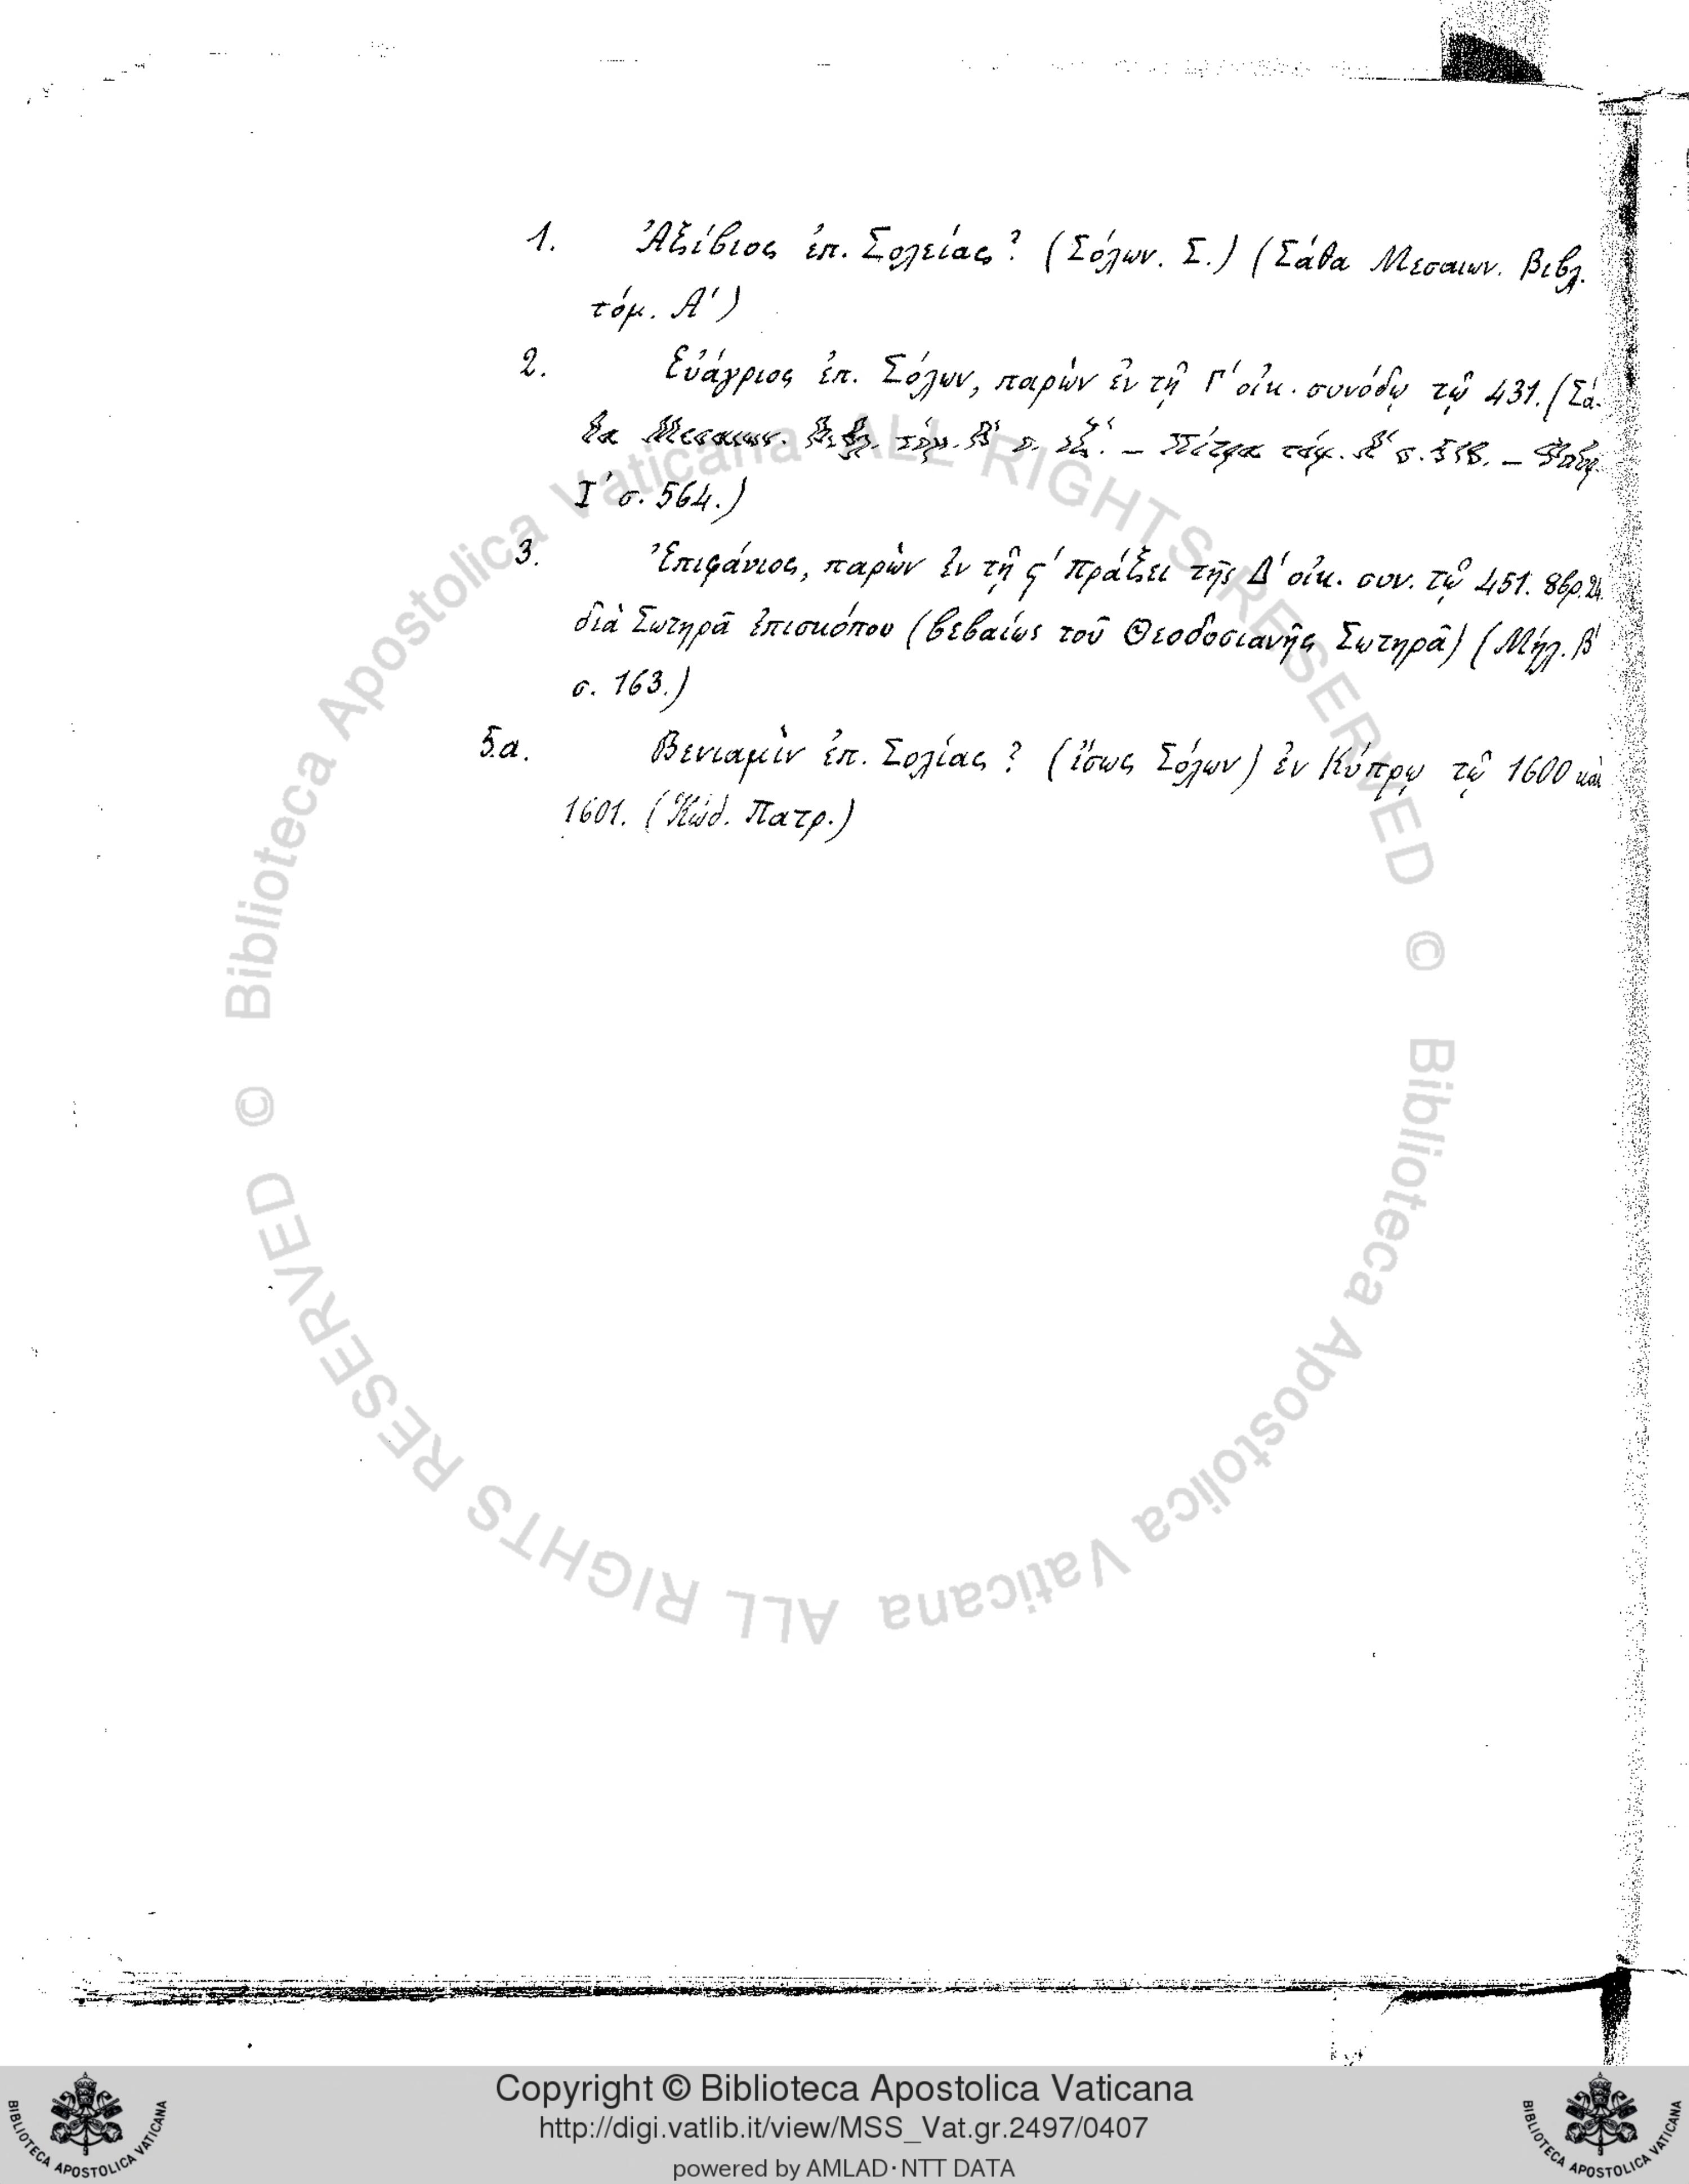 1. Ἀξίβιος ἐπ. Σολείας? (Σόλων. Σ.) (Σάθα Μεσαιων. Βιβλ.
τόμ. Α')
2. Εὐάγριος ἐπ. Σόλων, παρὼν ἐν τῇ Γ' οἰκ. συνόδῳ τῷ 431. (Σά-
θα Μεσαιων. Βιβλ. τόμ. Β' σ. – τόμ. σ. –
Ι' σ. 564.)
3. Ἐπιφάνιος, παρὼν ἐν τῇ ϛ' πράξει τῆς Δ' οἰκ. συν. τῷ 451. 8βρ. 24
διὰ Σωτηρᾶ ἐπισκόπου (βεβαίως τοῦ Θεοδοσιανῆς Σωτηρᾶ) (Μήλ. Β'
σ. 163.)
5.α. Βενιαμὶν ἐπ. Σολίας? (ἴσως Σόλων) ἐν Κύπρῳ τῷ 1600 καὶ
1601. (Κώδ. Πατρ.)
© Biblioteca Apostolica Vaticana ALL RIGHTS RESERVED
© Biblioteca Apostolica Vaticana ALL RIGHTS RESERVED
BIBLIOTECA APOSTOLICA VATICANA
Copyright © Biblioteca Apostolica Vaticana
http://digi.vatlib.it/view/MSS_Vat.gr.2497/0407
powered by AMLAD·NTT DATA
BIBLIOTECA APOSTOLICA VATICANA